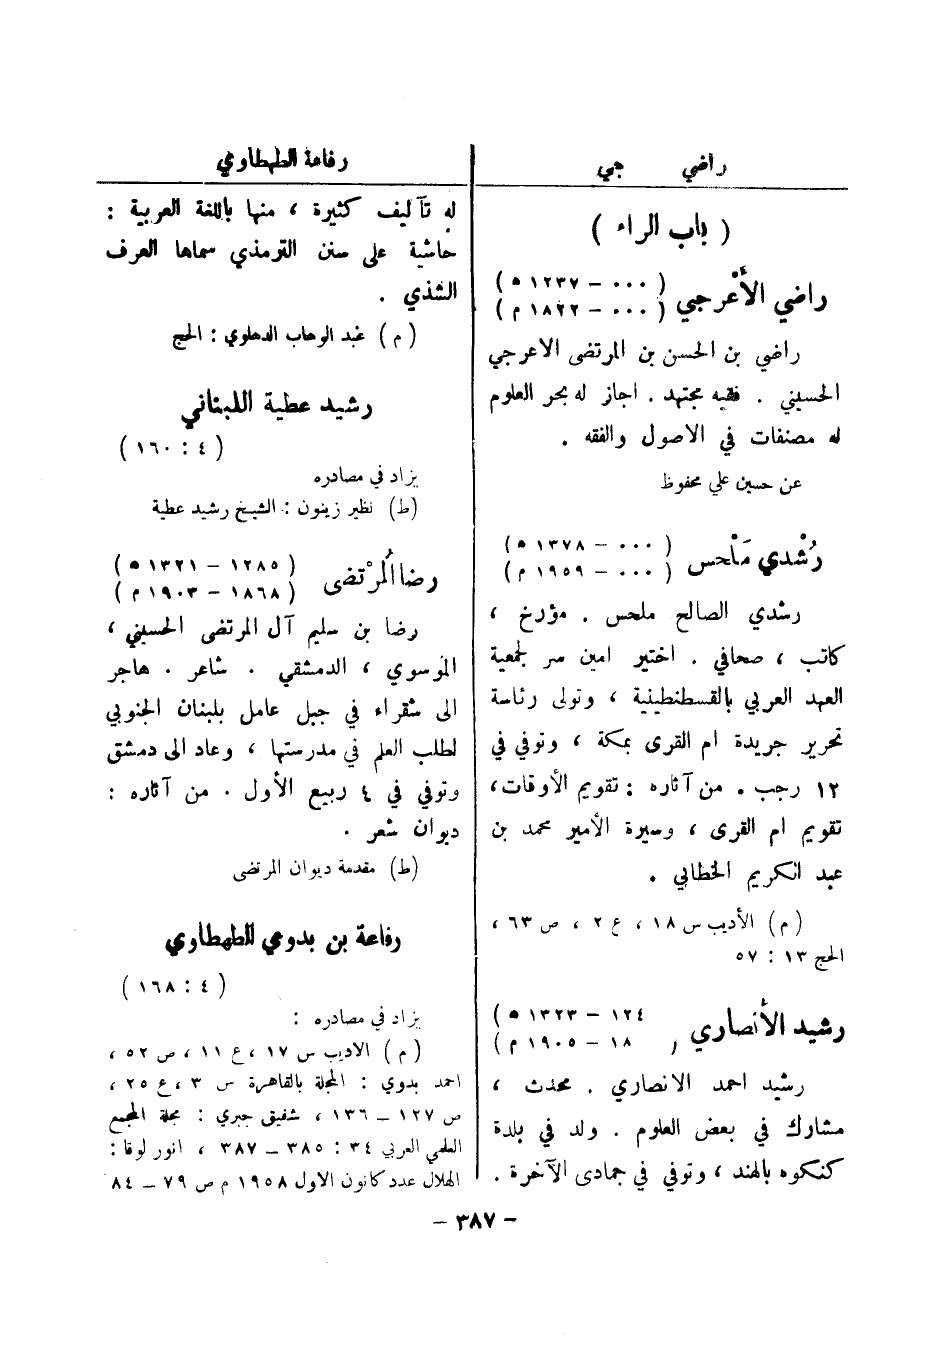 راضي جي
( باب الراء )
راضي الأعرجي ( ٠٠٠ – ١٢٣٧ ه )
( ٠٠٠ – ١٨٢٢ م )
راضي بن الحسن بن المرتضى الاعرجي
الحسيني . فقيه مجتهد . اجاز له بحر العلوم
له مصنفات في الاصول والفقه .
عن حسين علي محفوظ
رُشْدي مَلْحس ( ٠٠٠ – ١٣٧٨ ه )
( ٠٠٠ – ١٩٥٩ م )
رشدي الصالح ملحس . مؤرخ ،
كاتب ، صحافي . اختير امين سر لجمعية
العهد العربي بالقسطنطينية ، وتولى رئاسة
تحرير جريدة ام القرى بمكة ، وتوفي في
١٢ رجب . من آثاره : تقويم الأوقات ،
تقويم ام القرى ، وسيرة الأمير محمد بن
عبد الكريم الخطابي .
( م ) الأديب س ١٨ ، ع ٢ ، ص ٦٣ ،
الحج ١٣ : ٥٧
رشيد الأنصاري ١٢٤ – ١٣٢٣ ه )
١٨ – ١٩٠٥ م )
رشيد احمد الانصاري . محدث ،
مشارك في بعض العلوم . ولد في بلدة
كنكوه بالهند ، وتوفي في جمادى الآخرة .
رفاعة الطهطاوي
له تآليف كثيرة ، منها باللغة العربية :
حاشية على سنن الترمذي سماها العرف
الشذي .
( م ) عبد الوهاب الدهلوي : الحج
رشيد عطية اللبناني
( ٤ : ١٦٠ )
يزاد في مصادره
(ط) نظير زيتون : الشيخ رشيد عطية
رضا المُرْتضى ( ١٢٨٥ – ١٣٢١ ه )
( ١٨٦٨ – ١٩٠٣ م )
رضا بن سليم آل المرتضى الحسيني ،
الموسوي ، الدمشقي . شاعر . هاجر
الى شقراء في جبل عامل بلبنان الجنوبي
لطلب العلم في مدرستها ، وعاد الى دمشق
وتوفي في ٤ ربيع الأول . من آثاره :
ديوان شعر .
(ط) مقدمة ديوان المرتضى
رفاعة بن بدوي الطهطاوي
( ٤ : ١٦٨ )
يزاد في مصادره :
( م ) الاديب س ١٧ ، ع ١١ ، ص ٥٢ ،
احمد بدوي : المجلة بالقاهرة س ٣ ، ع ٢٥ ،
ص ١٢٧ – ١٣٦ ، شفيق جبري : مجلة المجمع
العلمي العربي ٣٤ : ٣٨٥ – ٣٨٧ ، انور لوقا :
الهلال عدد كانون الاول ١٩٥٨ م ص ٧٩ – ٨٤
– ٣٨٧ –